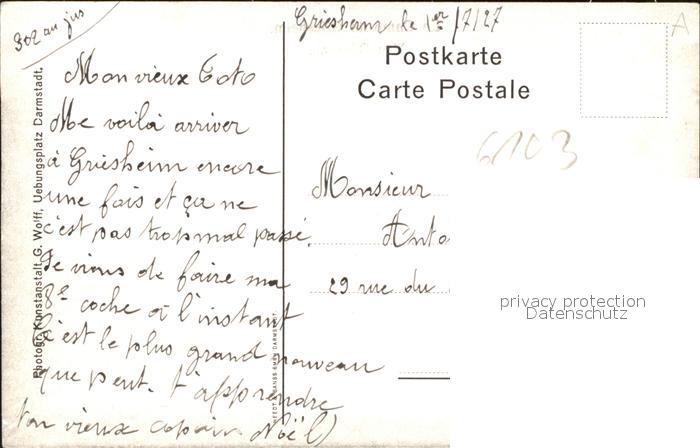 302 au jus
Griesheim le 1er/7/27
Postkarte
Carte Postale
A
6103
Mon vieux Toto
Me voilà arriver
à Griesheim encore
une fois et ça ne
c'est pas trop mal passé.
Je viens de faire ma
8e coche à l'instant
C'est le plus grand nouveau
que peut. t'apprendre
ton vieux copain Noël)
Monsieur
Anto
29 rue du
privacy protection
Datenschutz
Photogr. Kunstanstalt, G. Wolff, Uebungsplatz Darmstadt.